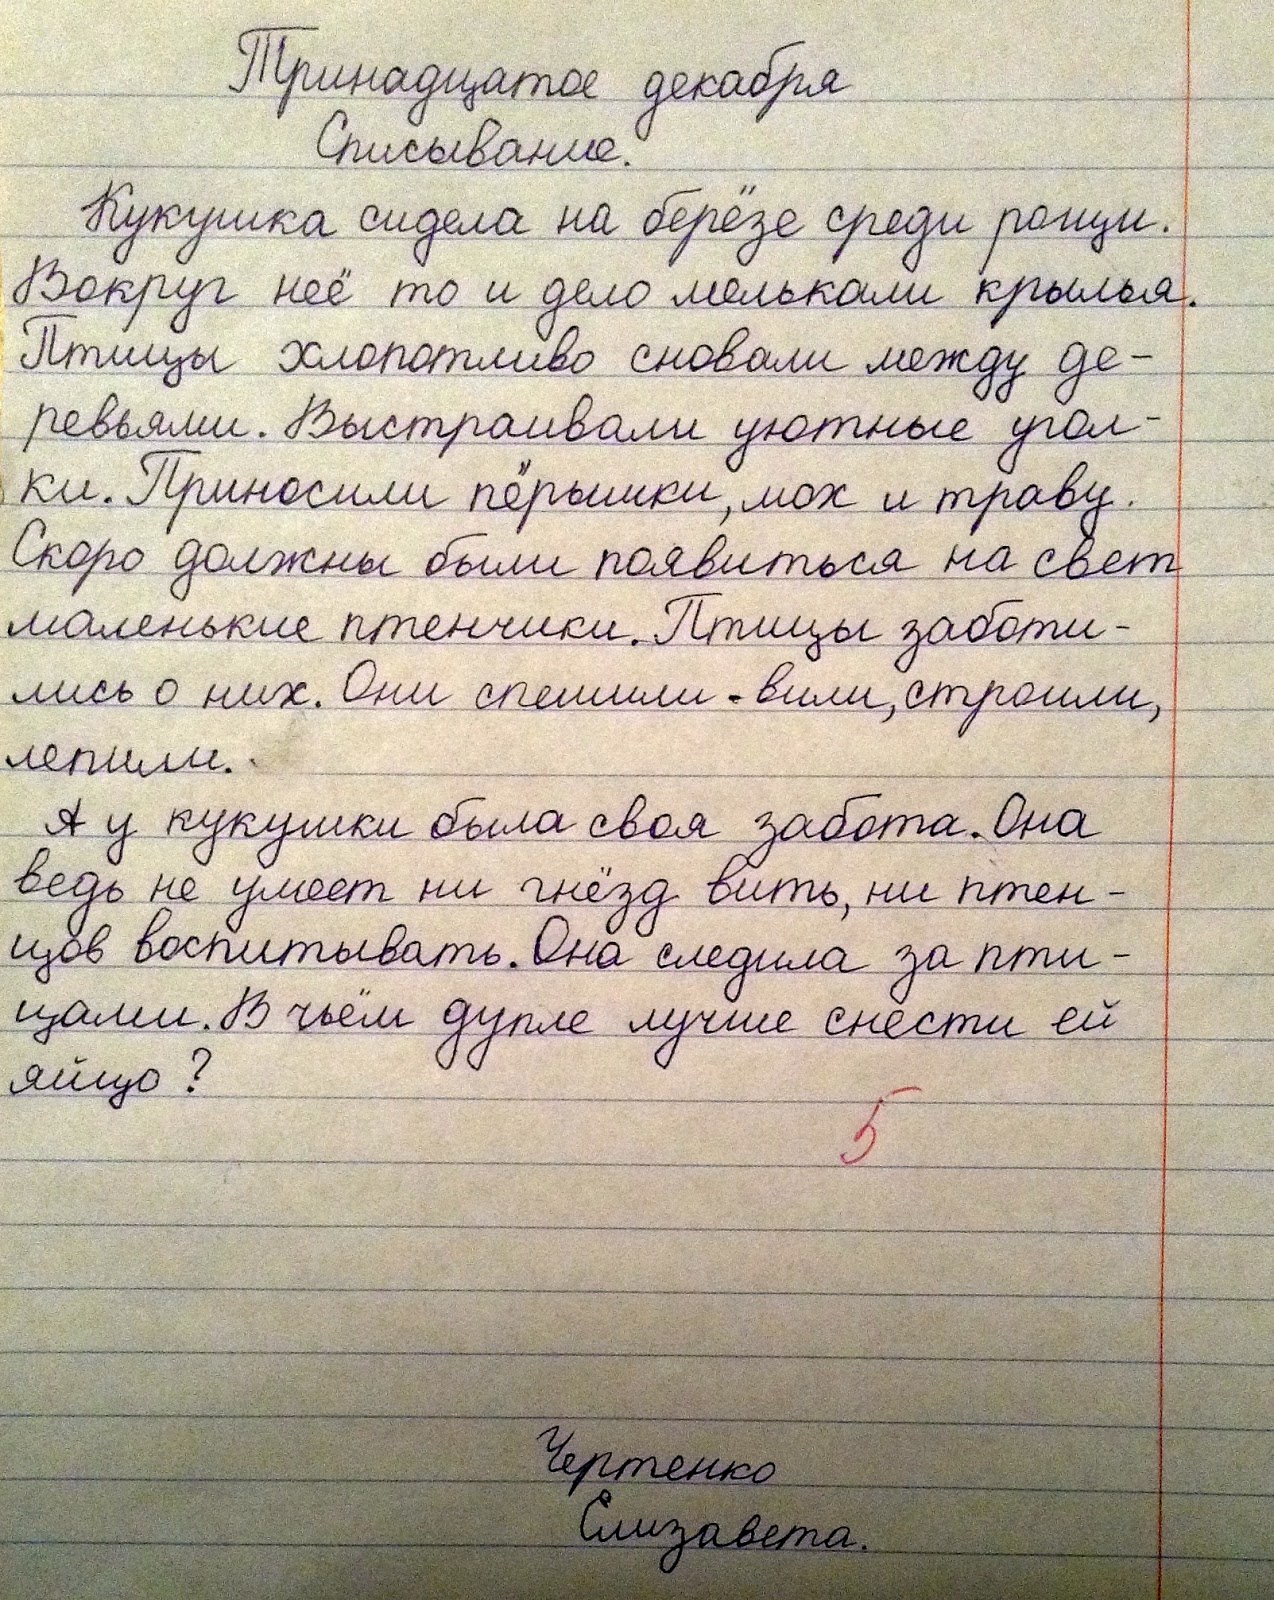 Тринадцатое декабря
Списывание.
Кукушка сидела на берёзе среди рощи.
Вокруг неё то и дело мелькали крылья.
Птицы хлопотливо сновали между де-
ревьями. Выстраивали уютные угол-
ки. Приносили пёрышки, мох и траву.
Скоро должны были появиться на свет
маленькие птенчики. Птицы заботи-
лись о них. Они спешили - вили, строили,
лепили.
А у кукушки была своя забота. Она
ведь не умеет ни гнёзд вить, ни птен-
цов воспитывать. Она следила за пти-
цами. В чьём дупле лучше снести ей
яйцо?
5
Чертенко
Елизавета.